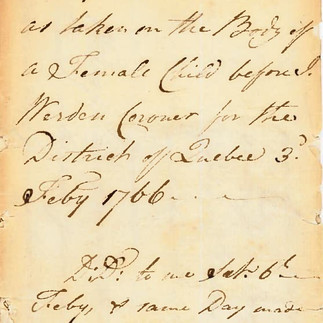 as taken on the Body of
a Female Child before I.
Werden Coroner for the
District of Quebec 3d.
Feby 1766
to me Sat. 6th
Feby, & same Day made